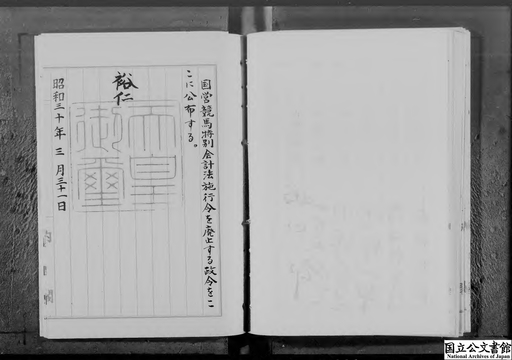 国営競馬特別会計法施行令を廃止する政令をこ
こに公布する。
裕仁
天皇
御璽
昭和三十年三月三十一日
国立公文書館
National Archives of Japan